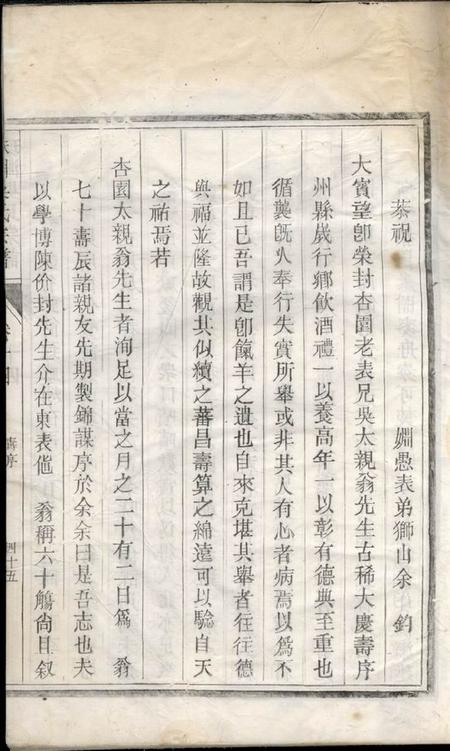 恭祝
姻愚表弟獅山余鈞
大賓望卽榮封杏園老表兄吳太親翁先生古稀大慶壽序
州縣歲行鄉飲酒禮一以養高年一以彰有德典至重也
循襲旣久奉行失實所舉或非其人有心者病焉以爲不
如且已吾謂是卽餼羊之遺也自來克堪其舉者往往德
與福並隆故觀其似續之蕃昌壽算之綿遠可以驗自天
之祐焉若
杏園太親翁先生者洵足以當之月之二十有二日爲 翁
七十壽辰諸親友先期製錦謀序於余余曰是吾志也夫
以學博陳价封先生介在東表僬 翁稱六十觴尙且叙
卷十四
壽序
四十五